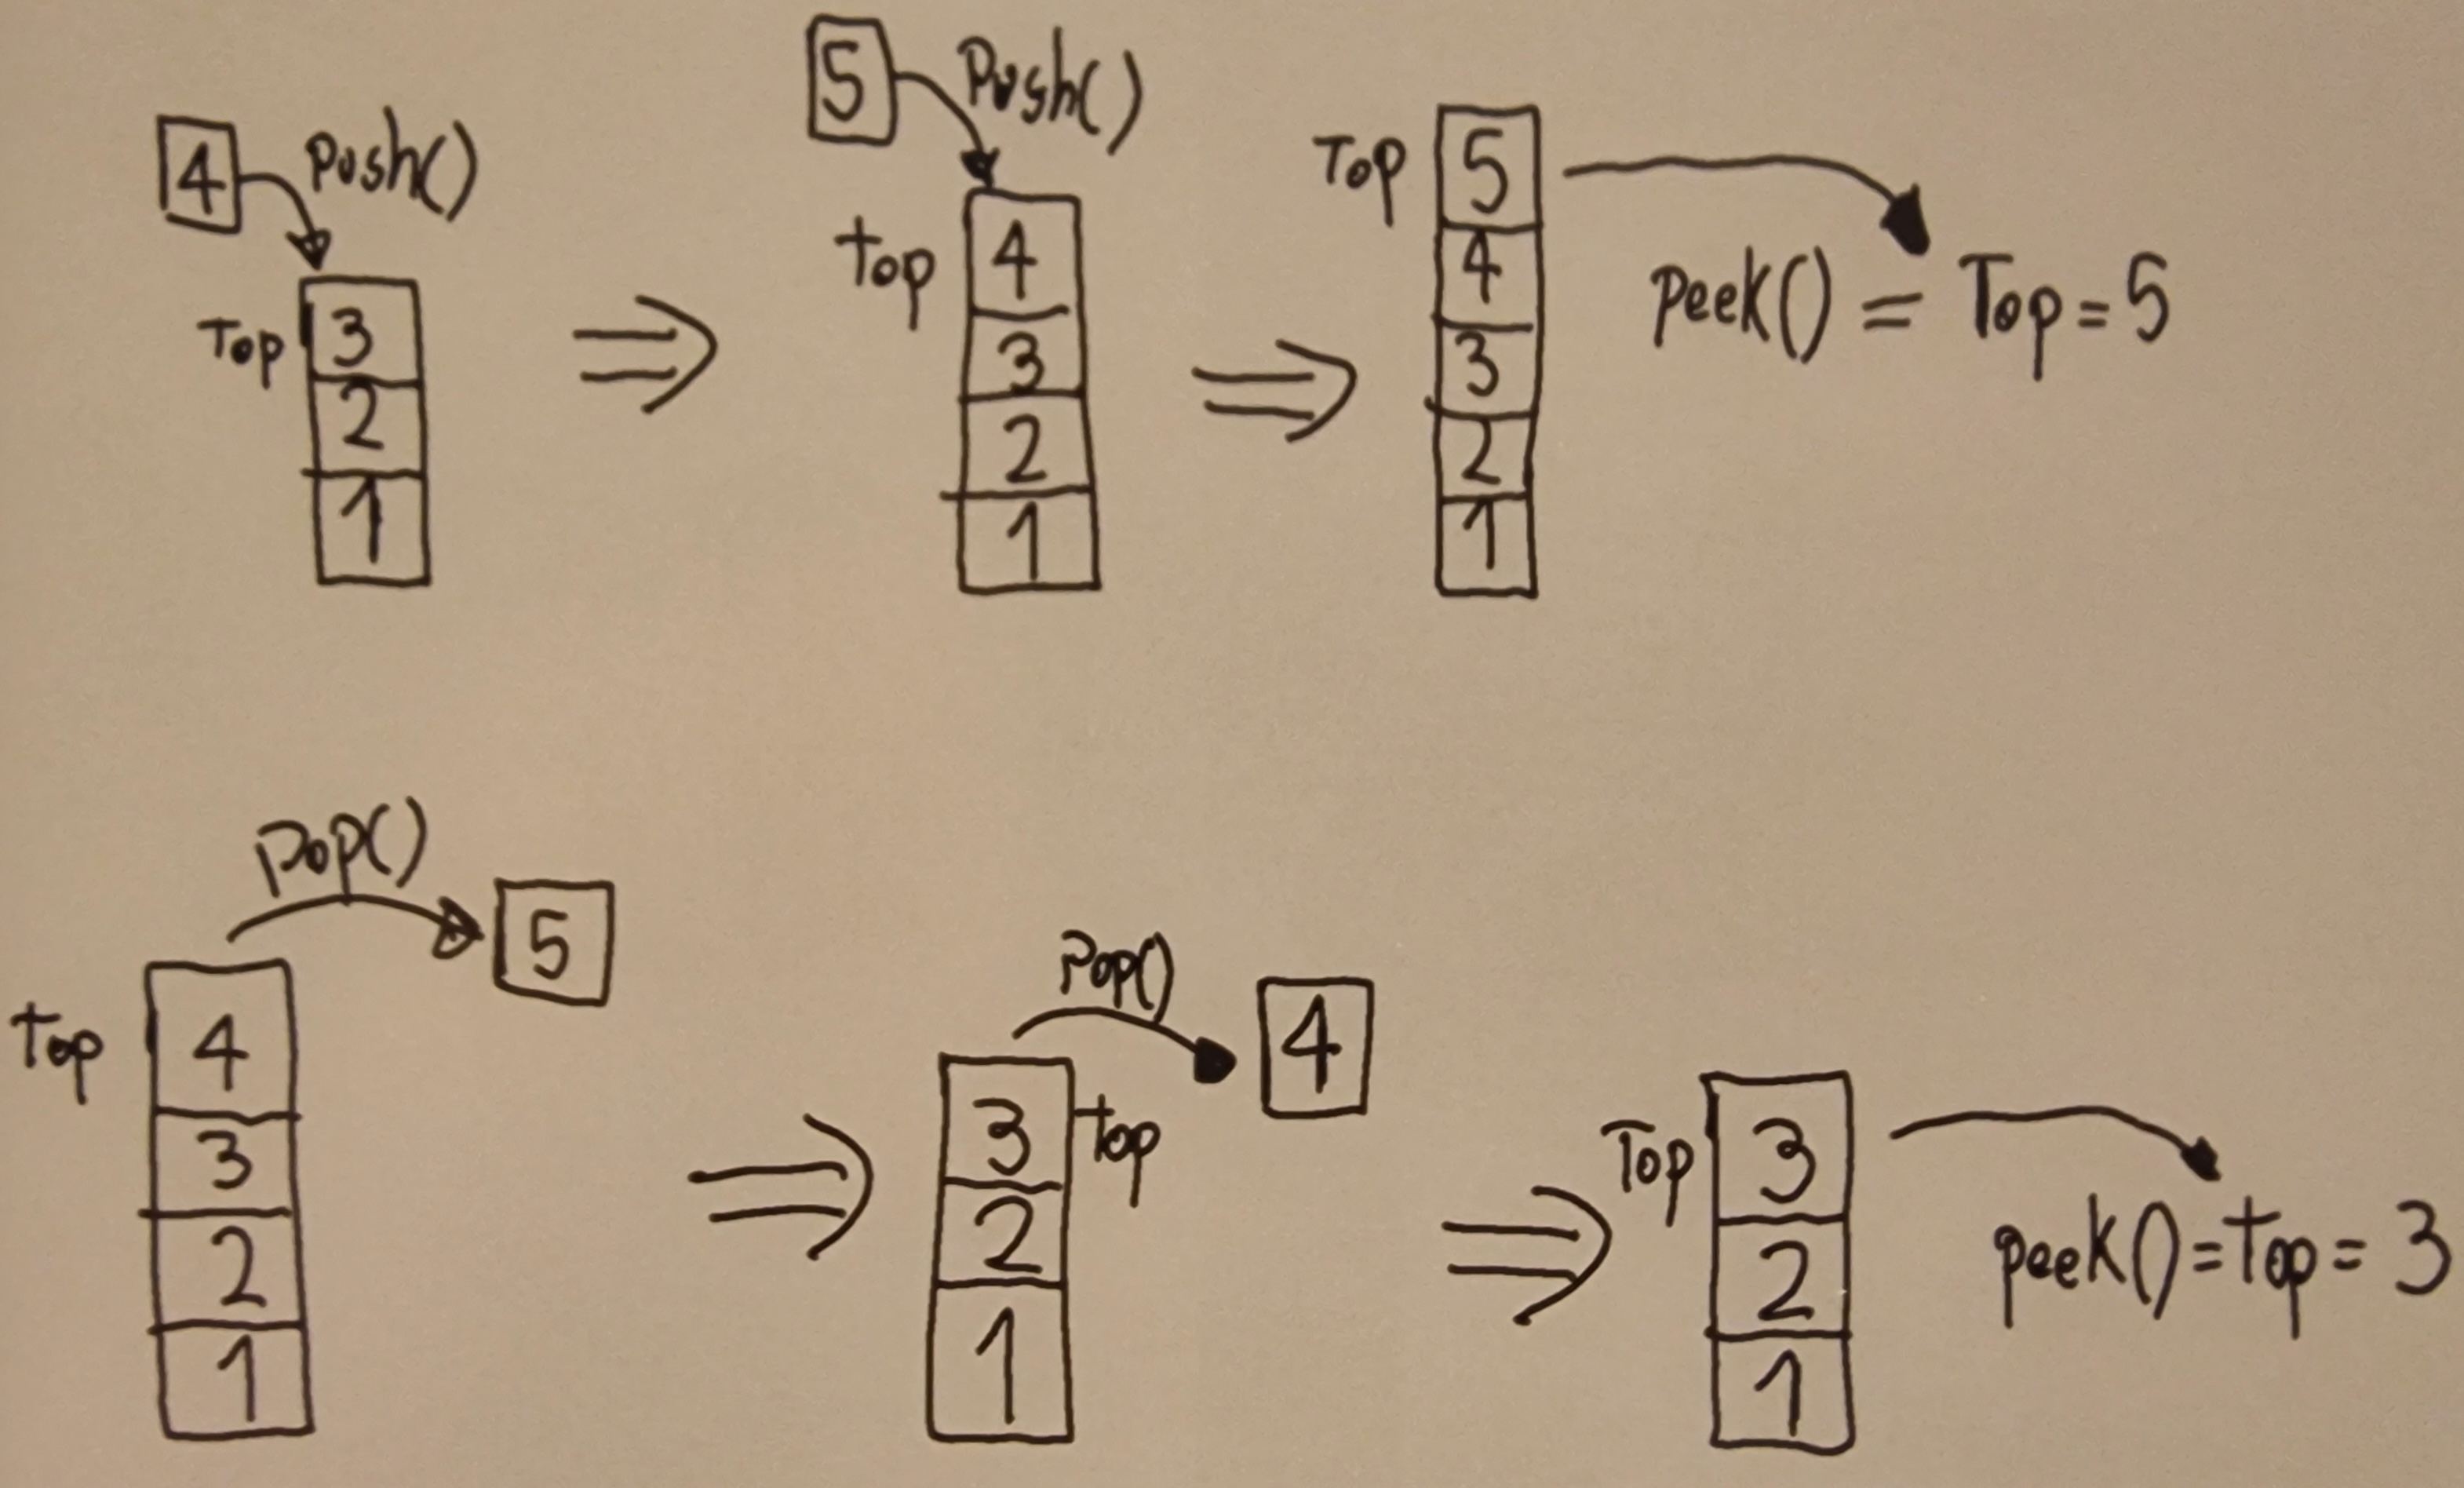 4 Push()
Top 3
2
1
5 Push()
top 4
3
2
1
Top 5
4
3
2
1
peek() = Top = 5
pop()
5
top 4
3
2
1
Pop()
4
3 top
2
1
Top 3
2
1
peek() = top = 3